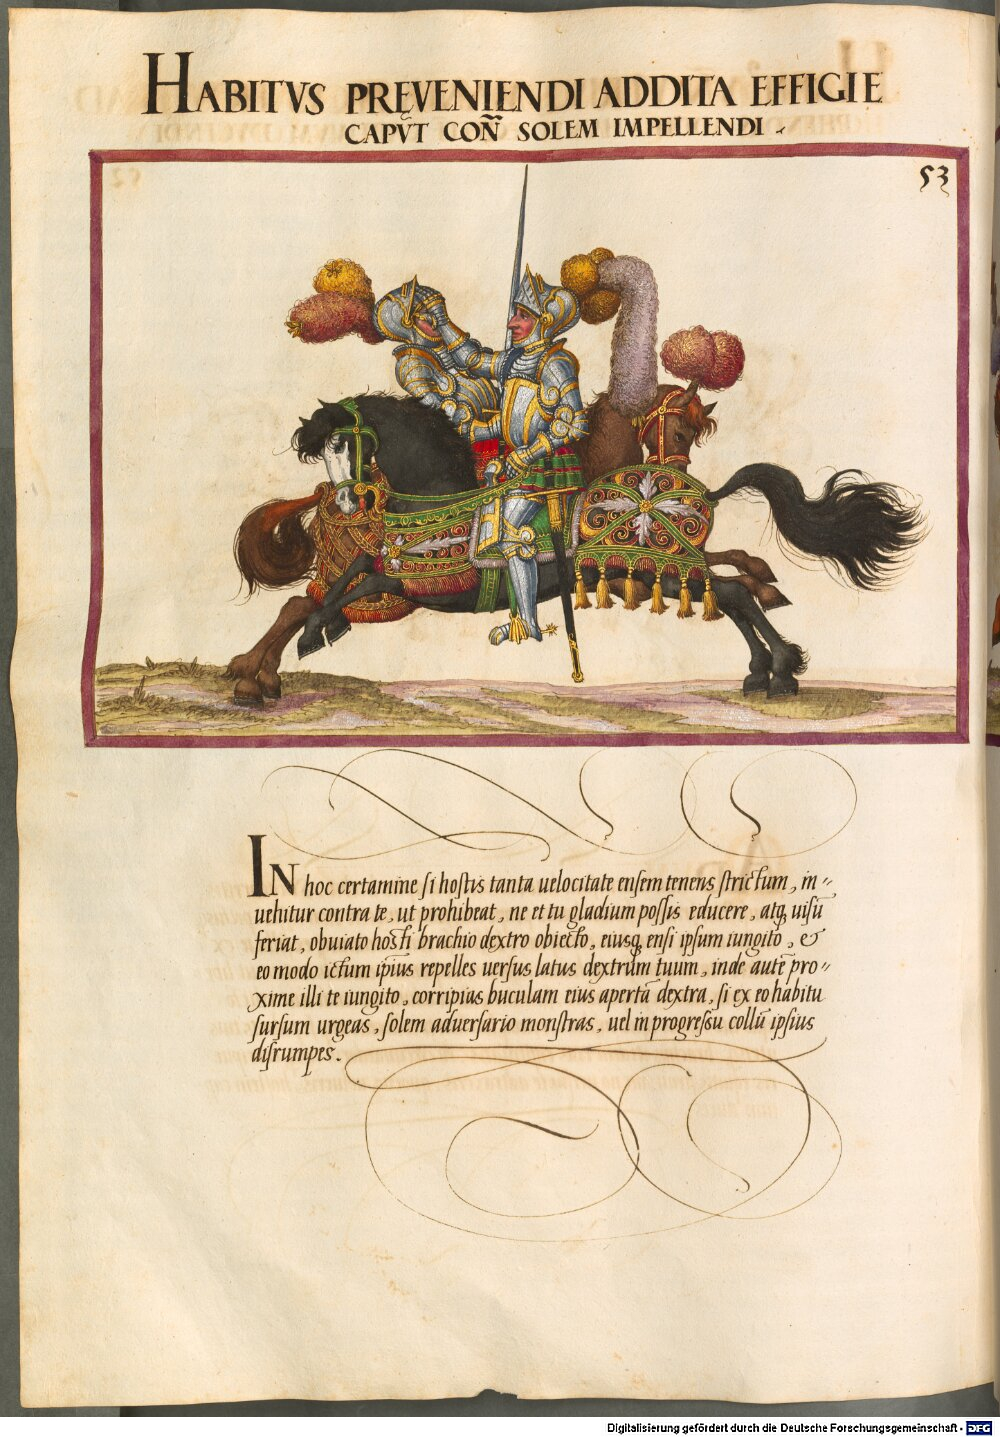 HABITVS PRĘVENIENDI ADDITA EFFIGIE
CAPVT COÑ SOLEM IMPELLENDI
53
IN hoc certamine si hostis tanta uelocitate ensem tenens strictum, in„
uehitur contra te, ut prohibeat, ne et tu gladium possis educere, atq; uisū
feriat, obuiato hosti brachio dextro obiecto, eiusq; ensi ipsum iungito, &
eo modo ictum ipius repelles uersus latus dextrum tuum, inde autē pro„
xime illi te iungito, corripias buculam eius apertā dextra, si ex eo habitu
sursum urgeas, solem aduersario monstras, uel in progressu collū ipsius
disrumpes.
Digitalisierung gefördert durch die Deutsche Forschungsgemeinschaft - DFG